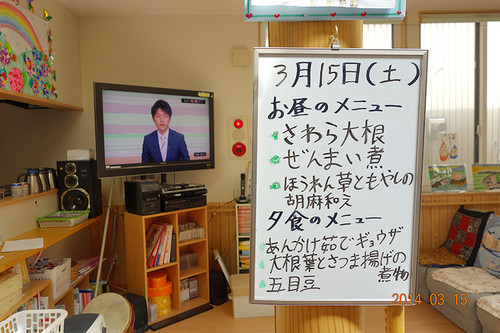 3月15日(土)
お昼のメニュー
さわら大根
ぜんまい煮
ほうれん草ともやしの
胡麻和え
夕食のメニュー
あんかけ茹でギョウザ
大根葉とさつま揚げの
煮物
五目豆
2014 03 15